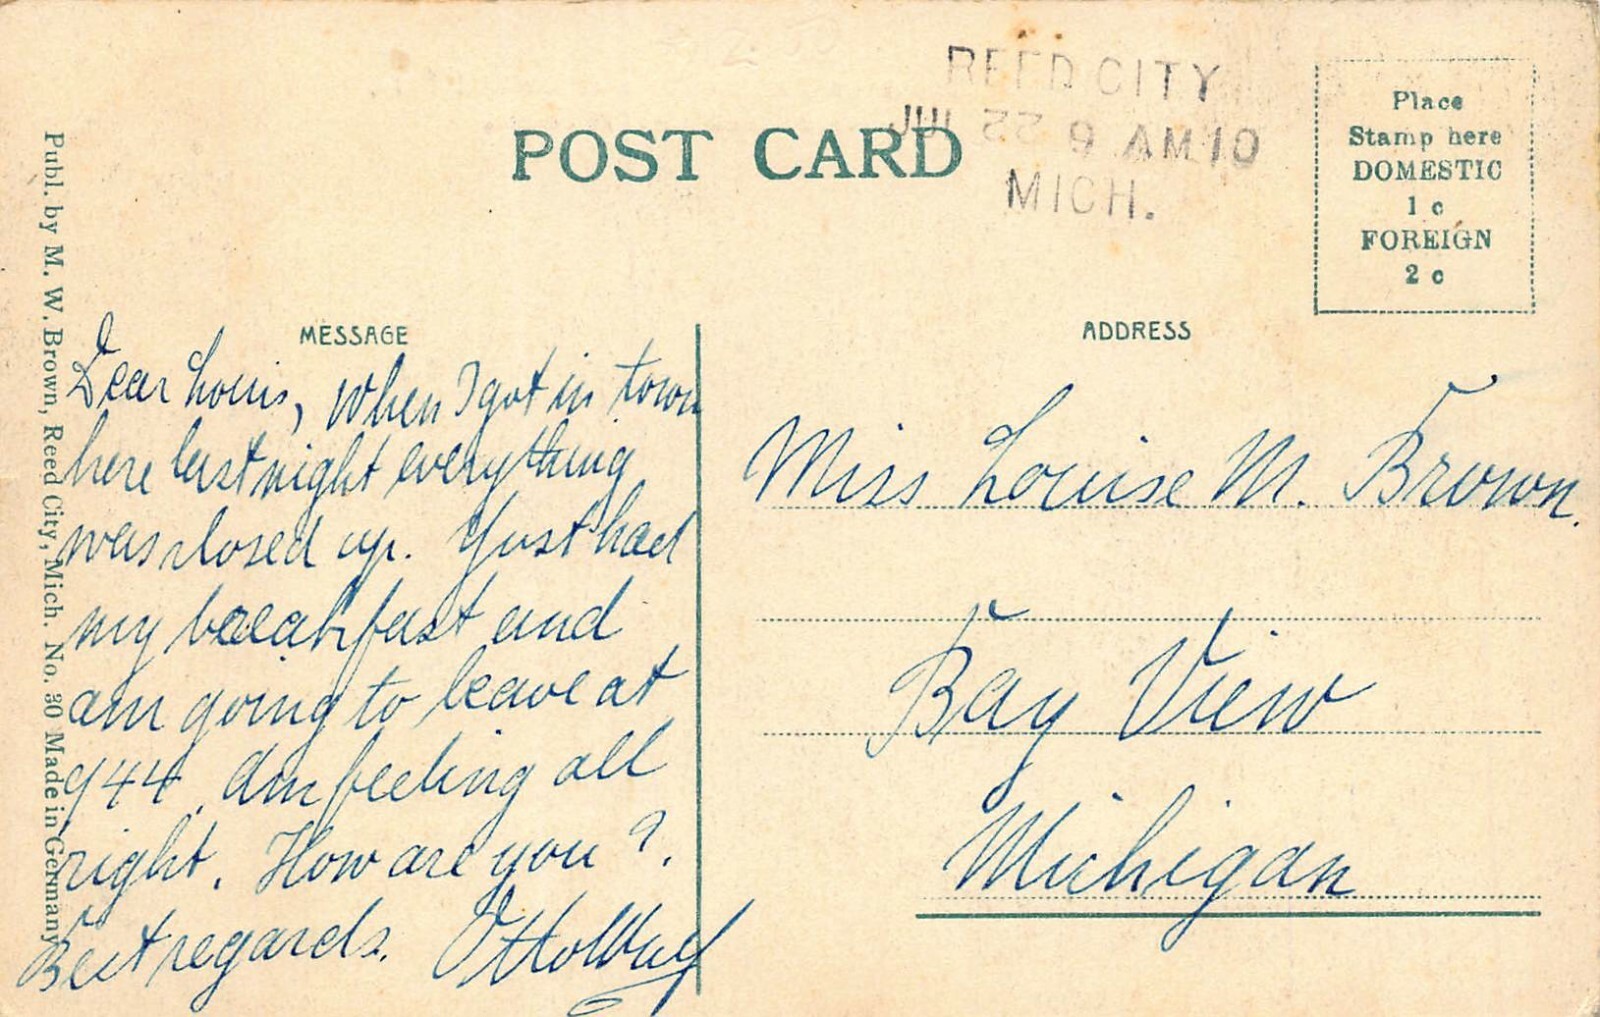 REED CITY
JUL 22 9 AM 10
MICH.
POST CARD
Place
Stamp here
DOMESTIC
1 c
FOREIGN
2 c
Publ. by M. W. Brown, Reed City, Mich. No. 30 Made in Germany
MESSAGE
Dear Louis, When I got in town
here last night everything
was closed up. Just had
my breakfast and
am going to leave at
944. Am feeling all
right. How are you?
Best regards. Otto
ADDRESS
Miss Louise M. Brown.
Bay View
Michigan